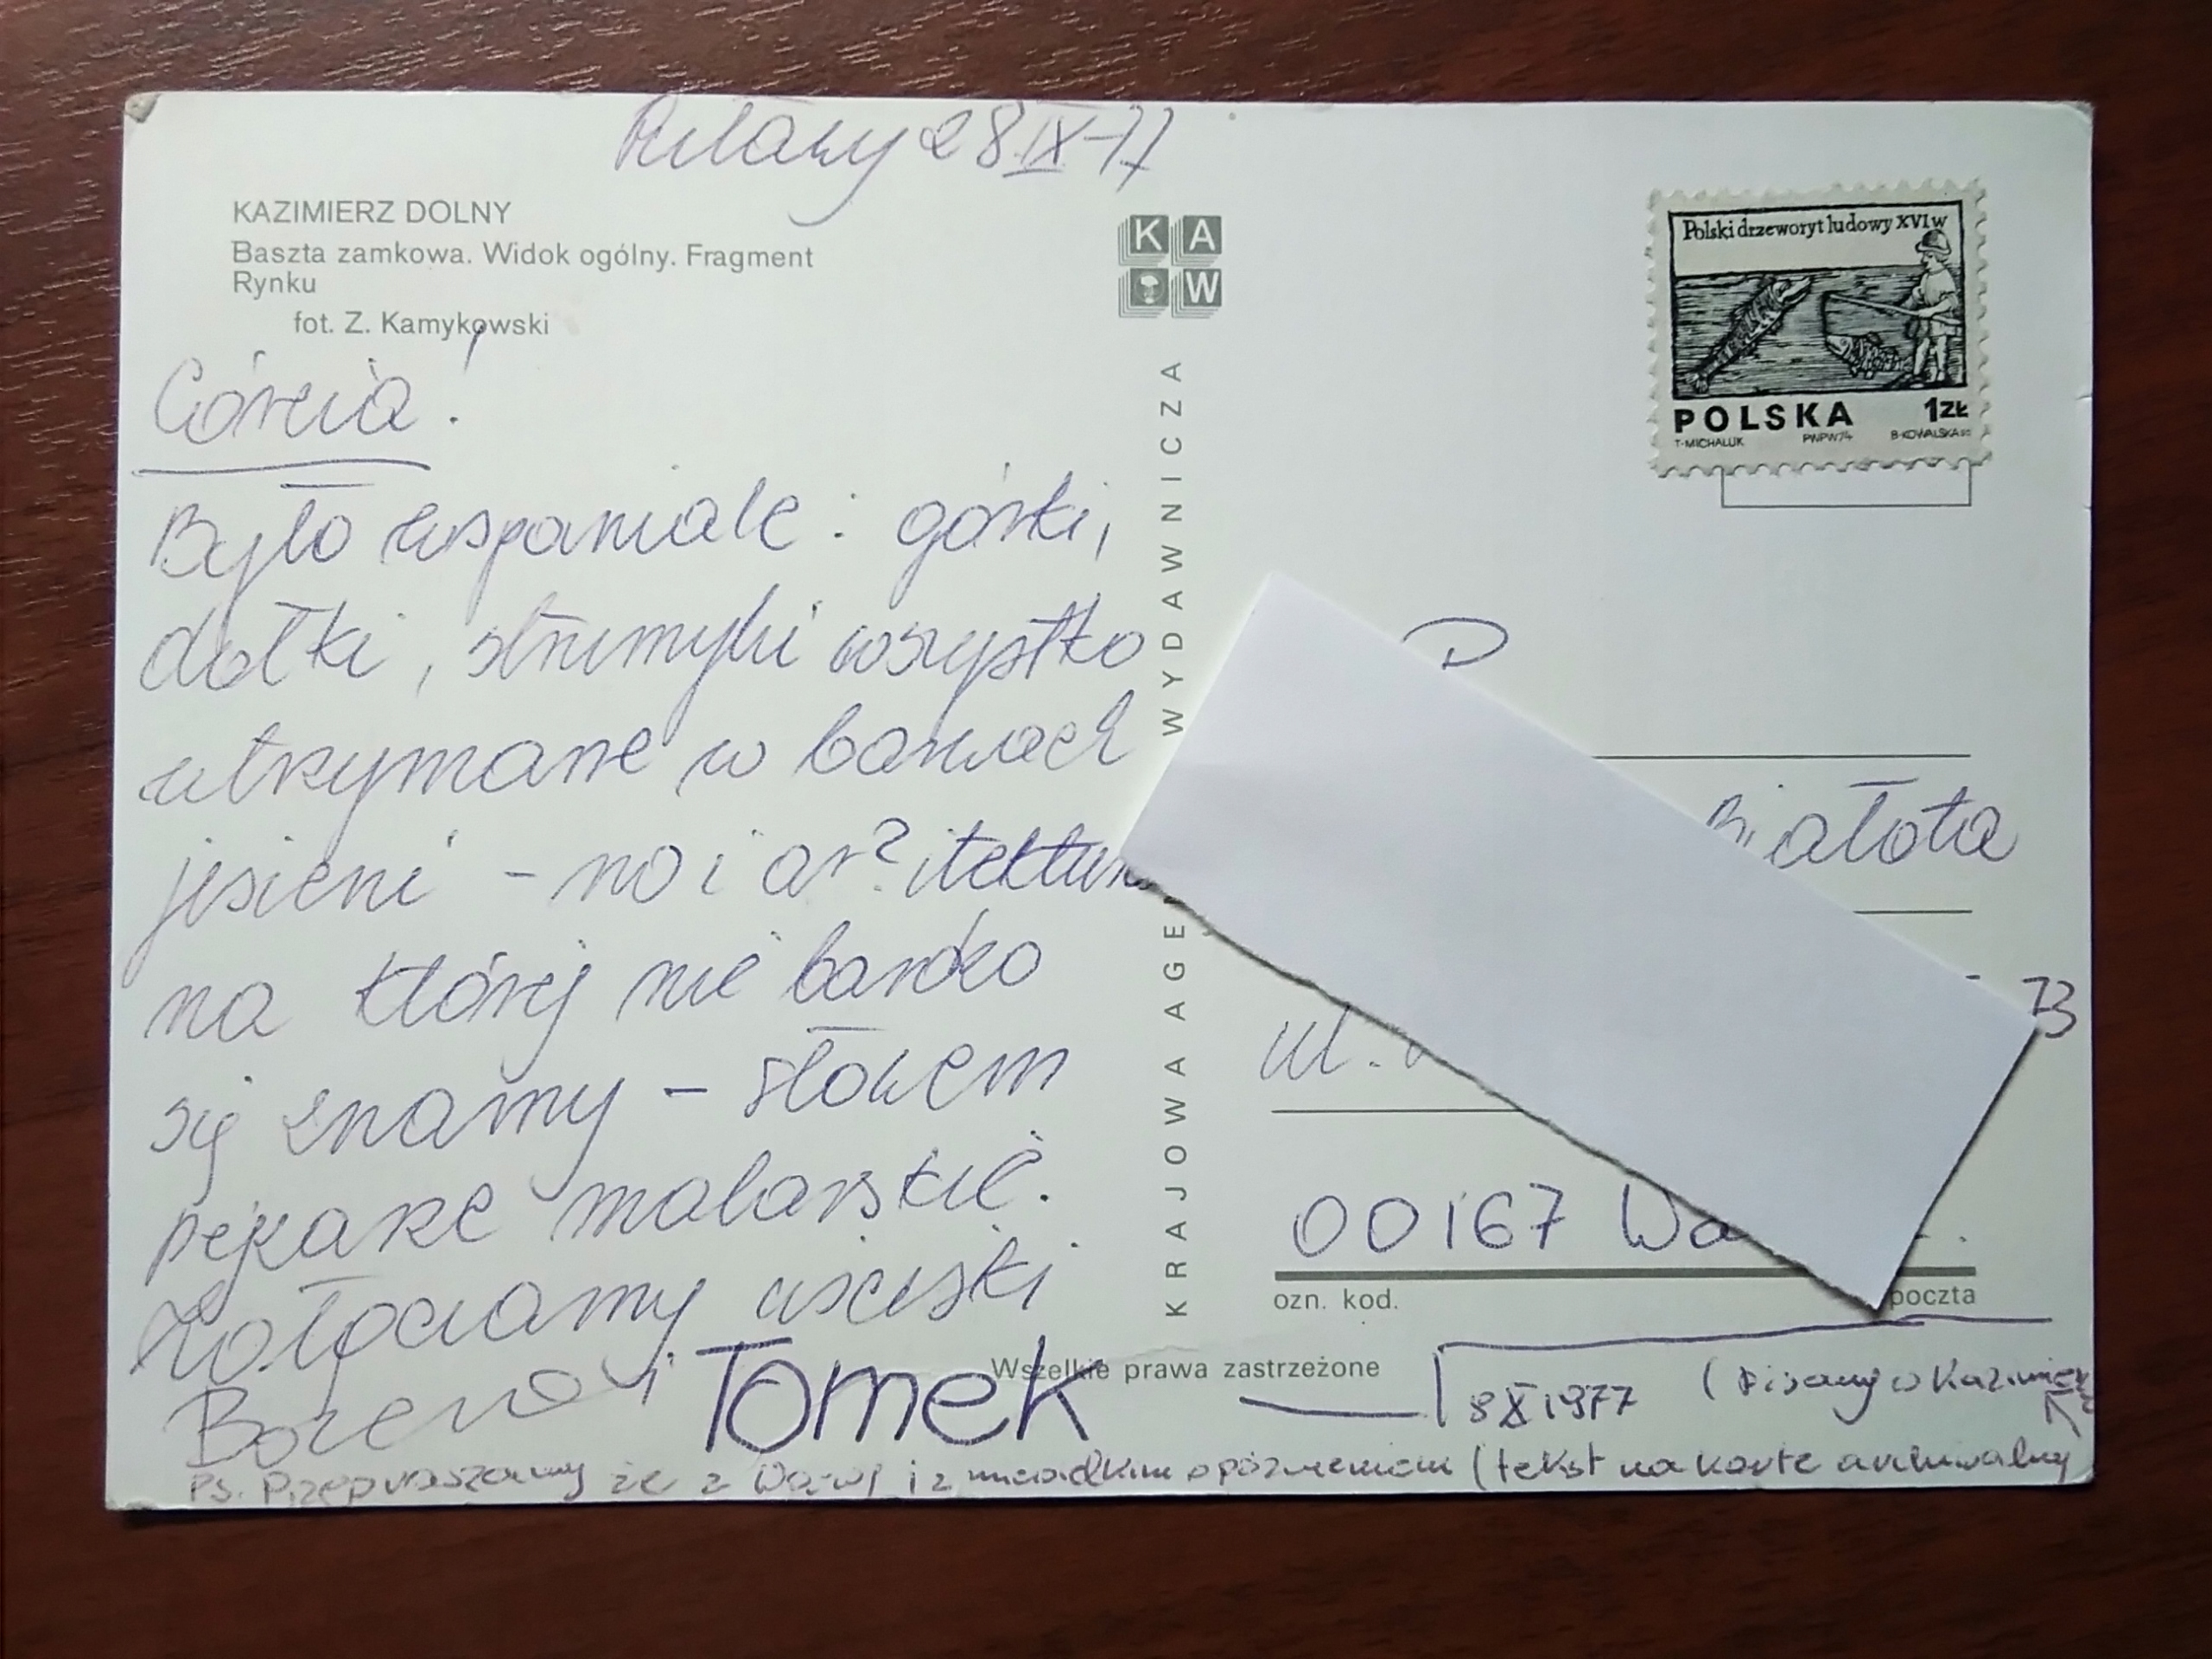 Puławy 28 IX-77
KAZIMIERZ DOLNY
Baszta zamkowa. Widok ogólny. Fragment
Rynku
fot. Z. Kamykowski
K A
W
KRAJOWA AGE WYDAWNICZA
Polski drzeworyt ludowy XVI w
POLSKA 1ZŁ
T·MICHALUK PWPW74 B·KOWALSKA
Było wspaniale: górki,
dołki, strumyki wszystko
utrzymane w barwach
jesieni - no i ar?itektura
na której nie bardzo
się znamy - słowem
pejzaże malarskie.
uściski
Bożena i Tomek
P
Białota
73
ul.
00167 Wa
ozn. kod. poczta
Wszelkie prawa zastrzeżone
8 X 1977 (Pisany w Kazimierzu
Ps. Przepraszamy że z W-wy i z opóźnieniem (tekst na karcie archiwalny